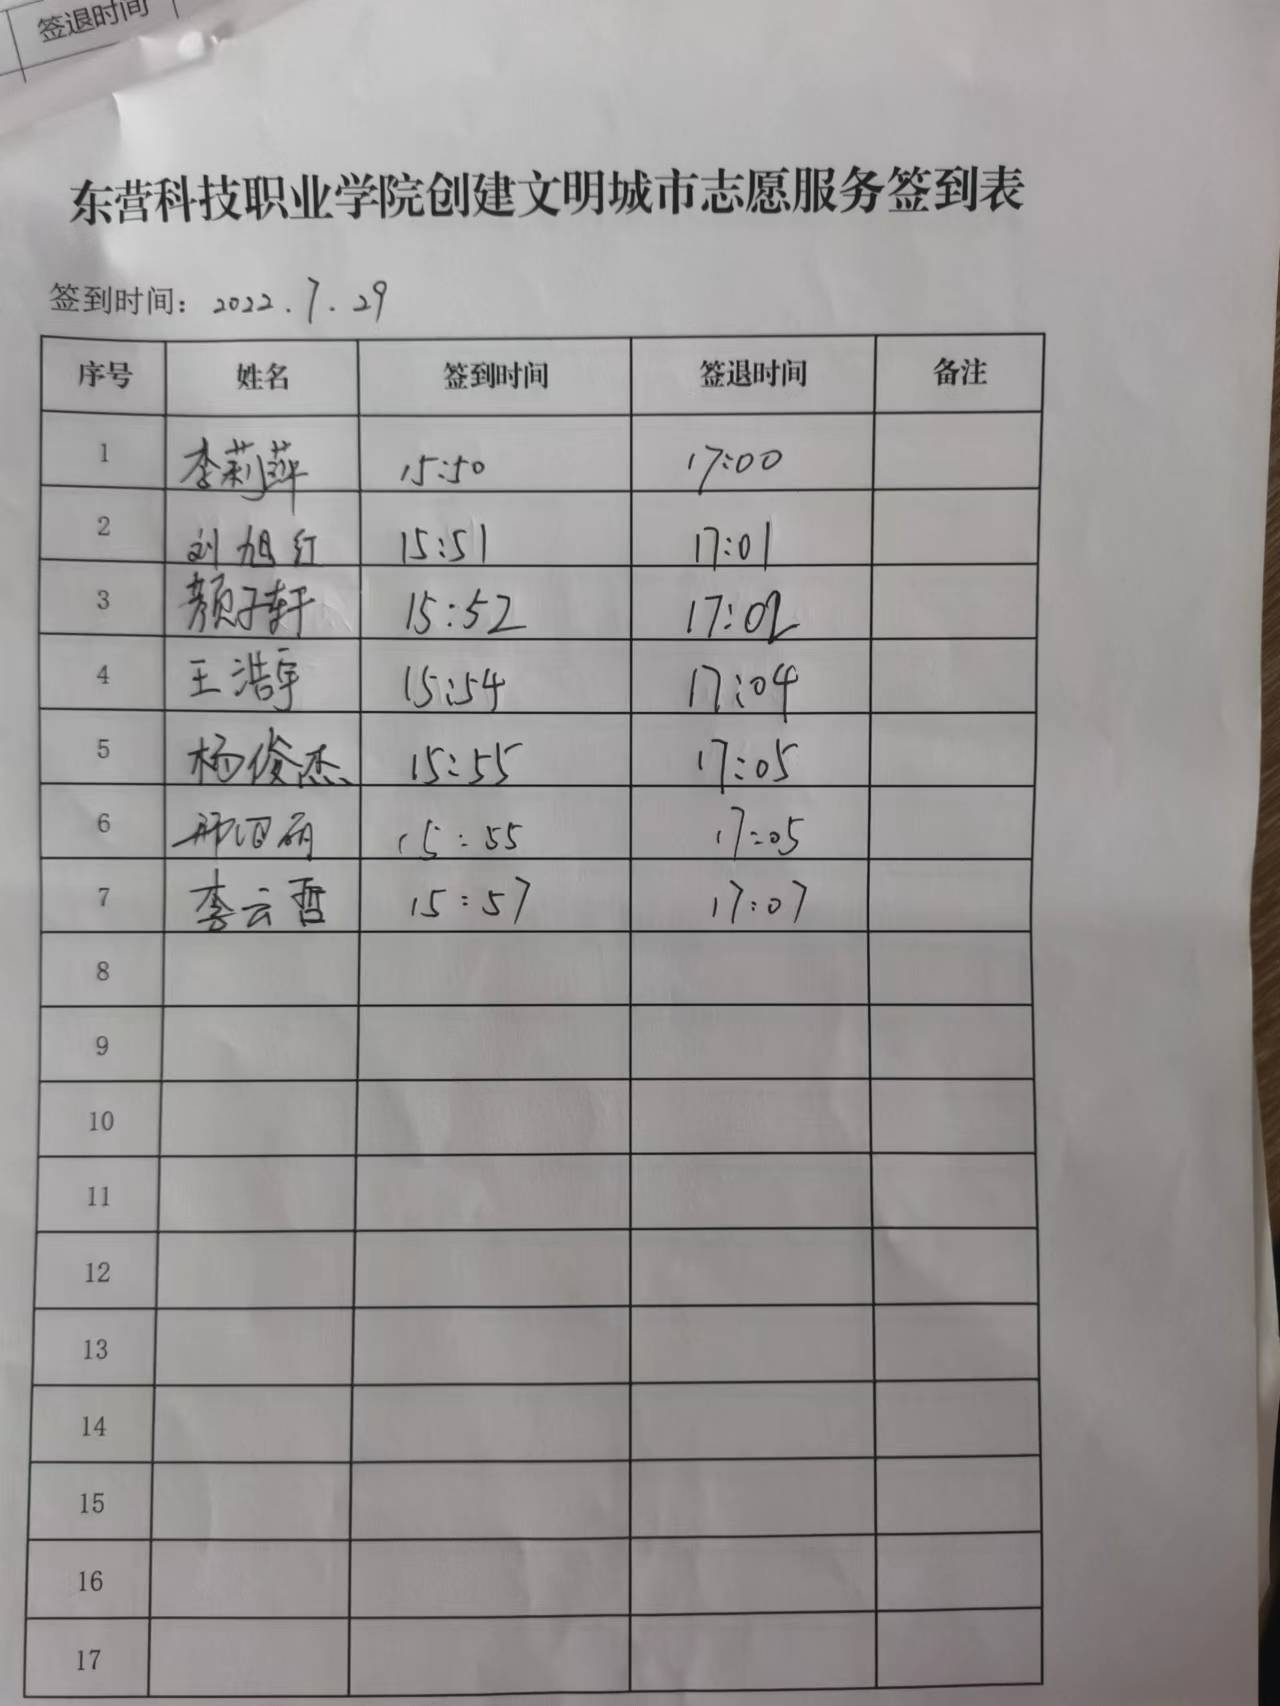 签退时间
东营科技职业学院创建文明城市志愿服务签到表
签到时间：2022.7.29
序号 姓名 签到时间 签退时间 备注
1 李莉萍 15:50 17:00
2 刘旭红 15:51 17:01
3 颜子轩 15:52 17:02
4 王浩宇 15:54 17:04
5 杨俊杰 15:55 17:05
6 15:55 17:05
7 李云哲 15:57 17:07
8
9
10
11
12
13
14
15
16
17